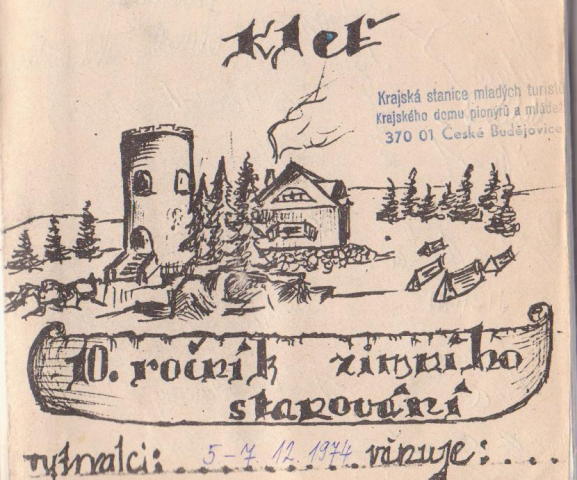 Kleť
Krajská stanice mladých turistů
Krajského domu pionýrů a mládeže
370 01 České Budějovice
10. ročník zimního
stanování
vytrvalci: 5-7 12. 1974 věnuje: